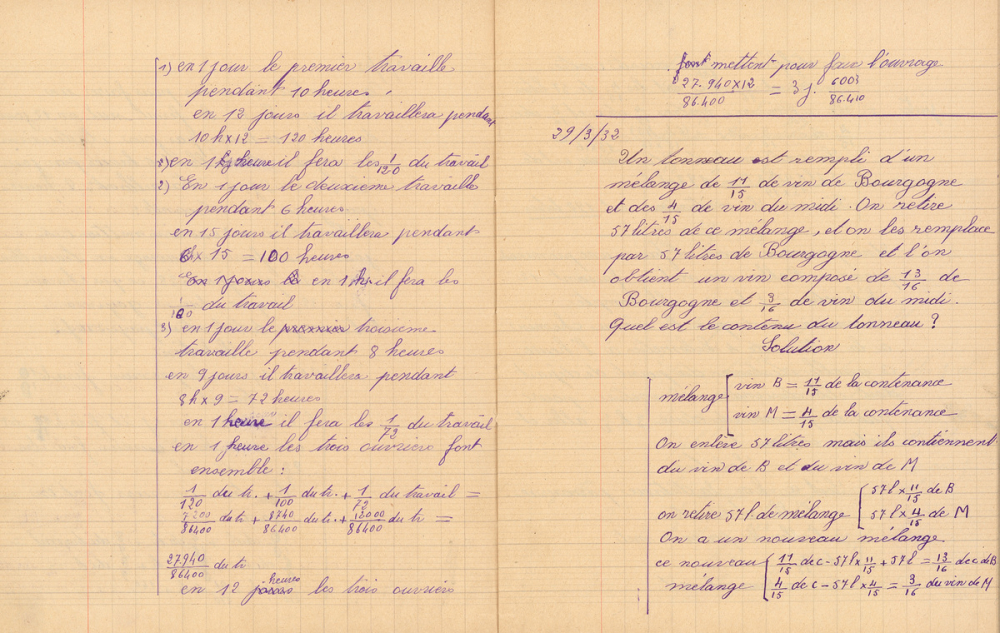 1) en 1 jour le premier travaille
pendant 10 heures.
en 12 jours il travaillera pendant
10h x 12 = 120 heures
en 1 heure il fera les 1/120 du travail
2) En 1 jour le deuxième travaille
pendant 6 heures
en 15 jours il travaillera pendant
6h x 15 = 100 heures
en 1 h il fera les
1/100 du travail
3) en 1 jour le troisième
travaille pendant 8 heures
en 9 jours il travaillera pendant
8h x 9 = 72 heures
en 1 heure il fera les 1/72 du travail
en 1 heure les trois ouvriers font
ensemble :
1/120 du tr. + 1/100 du tr. + 1/72 du travail =
7200/86400 du tr + 8740/86400 du tr. + 12000/86400 du tr =
27940/86400 du tr
en 12 heures les trois ouvriers
font mettent pour faire l'ouvrage
27.940 x 12/86.400 = 3 j. 6003/86.410
29/3/32
Un tonneau est rempli d'un
mélange de 11/15 de vin de Bourgogne
et des 4/15 de vin du midi. On retire
57 litres de ce mélange, et on les remplace
par 57 litres de Bourgogne et l'on
obtient un vin composé de 13/16 de
Bourgogne et 3/16 de vin du midi.
Quel est le contenu du tonneau ?
Solution
mélange [ vin B = 11/15 de la contenance
vin M = 4/15 de la contenance
On enlève 57 litres mais ils contiennent
du vin de B et du vin de M
on retire 57 l de mélange { 57 l x 11/15 de B
57 l x 4/15 de M
On a un nouveau mélange
ce nouveau { 11/15 de c - 57 l x 11/15 + 57 l = 13/16 de c de B
mélange 4/15 de c - 57 l x 4/15 = 3/16 du vin de M